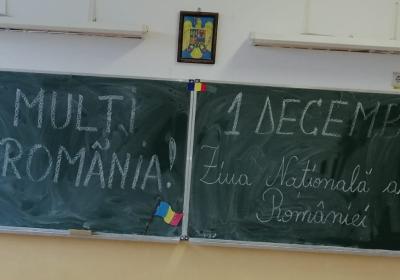 MULȚI
ROMÂNIA!
1 DECEMB
Ziua Națională a
României